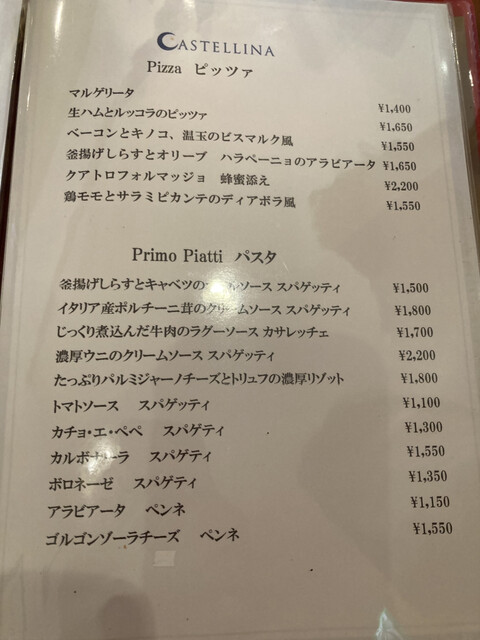 CASTELLINA
Pizza ピッツァ
マルゲリータ ¥1,400
生ハムとルッコラのピッツァ ¥1,650
ベーコンとキノコ、温玉のビスマルク風 ¥1,550
釜揚げしらすとオリーブ ハラペーニョのアラビアータ ¥1,650
クアトロフォルマッジョ 蜂蜜添え ¥2,200
鶏モモとサラミピカンテのディアボラ風 ¥1,550
Primo Piatti パスタ
釜揚げしらすとキャベツの ソース スパゲッティ ¥1,500
イタリア産ポルチーニ茸のクリームソース スパゲッティ ¥1,800
じっくり煮込んだ牛肉のラグーソース カサレッチェ ¥1,700
濃厚ウニのクリームソース スパゲッティ ¥2,200
たっぷりパルミジャーノチーズとトリュフの濃厚リゾット ¥1,800
トマトソース スパゲッティ ¥1,100
カチョ・エ・ペペ スパゲティ ¥1,300
カルボナーラ スパゲティ ¥1,550
ボロネーゼ スパゲティ ¥1,350
アラビアータ ペンネ ¥1,150
ゴルゴンゾーラチーズ ペンネ ¥1,550